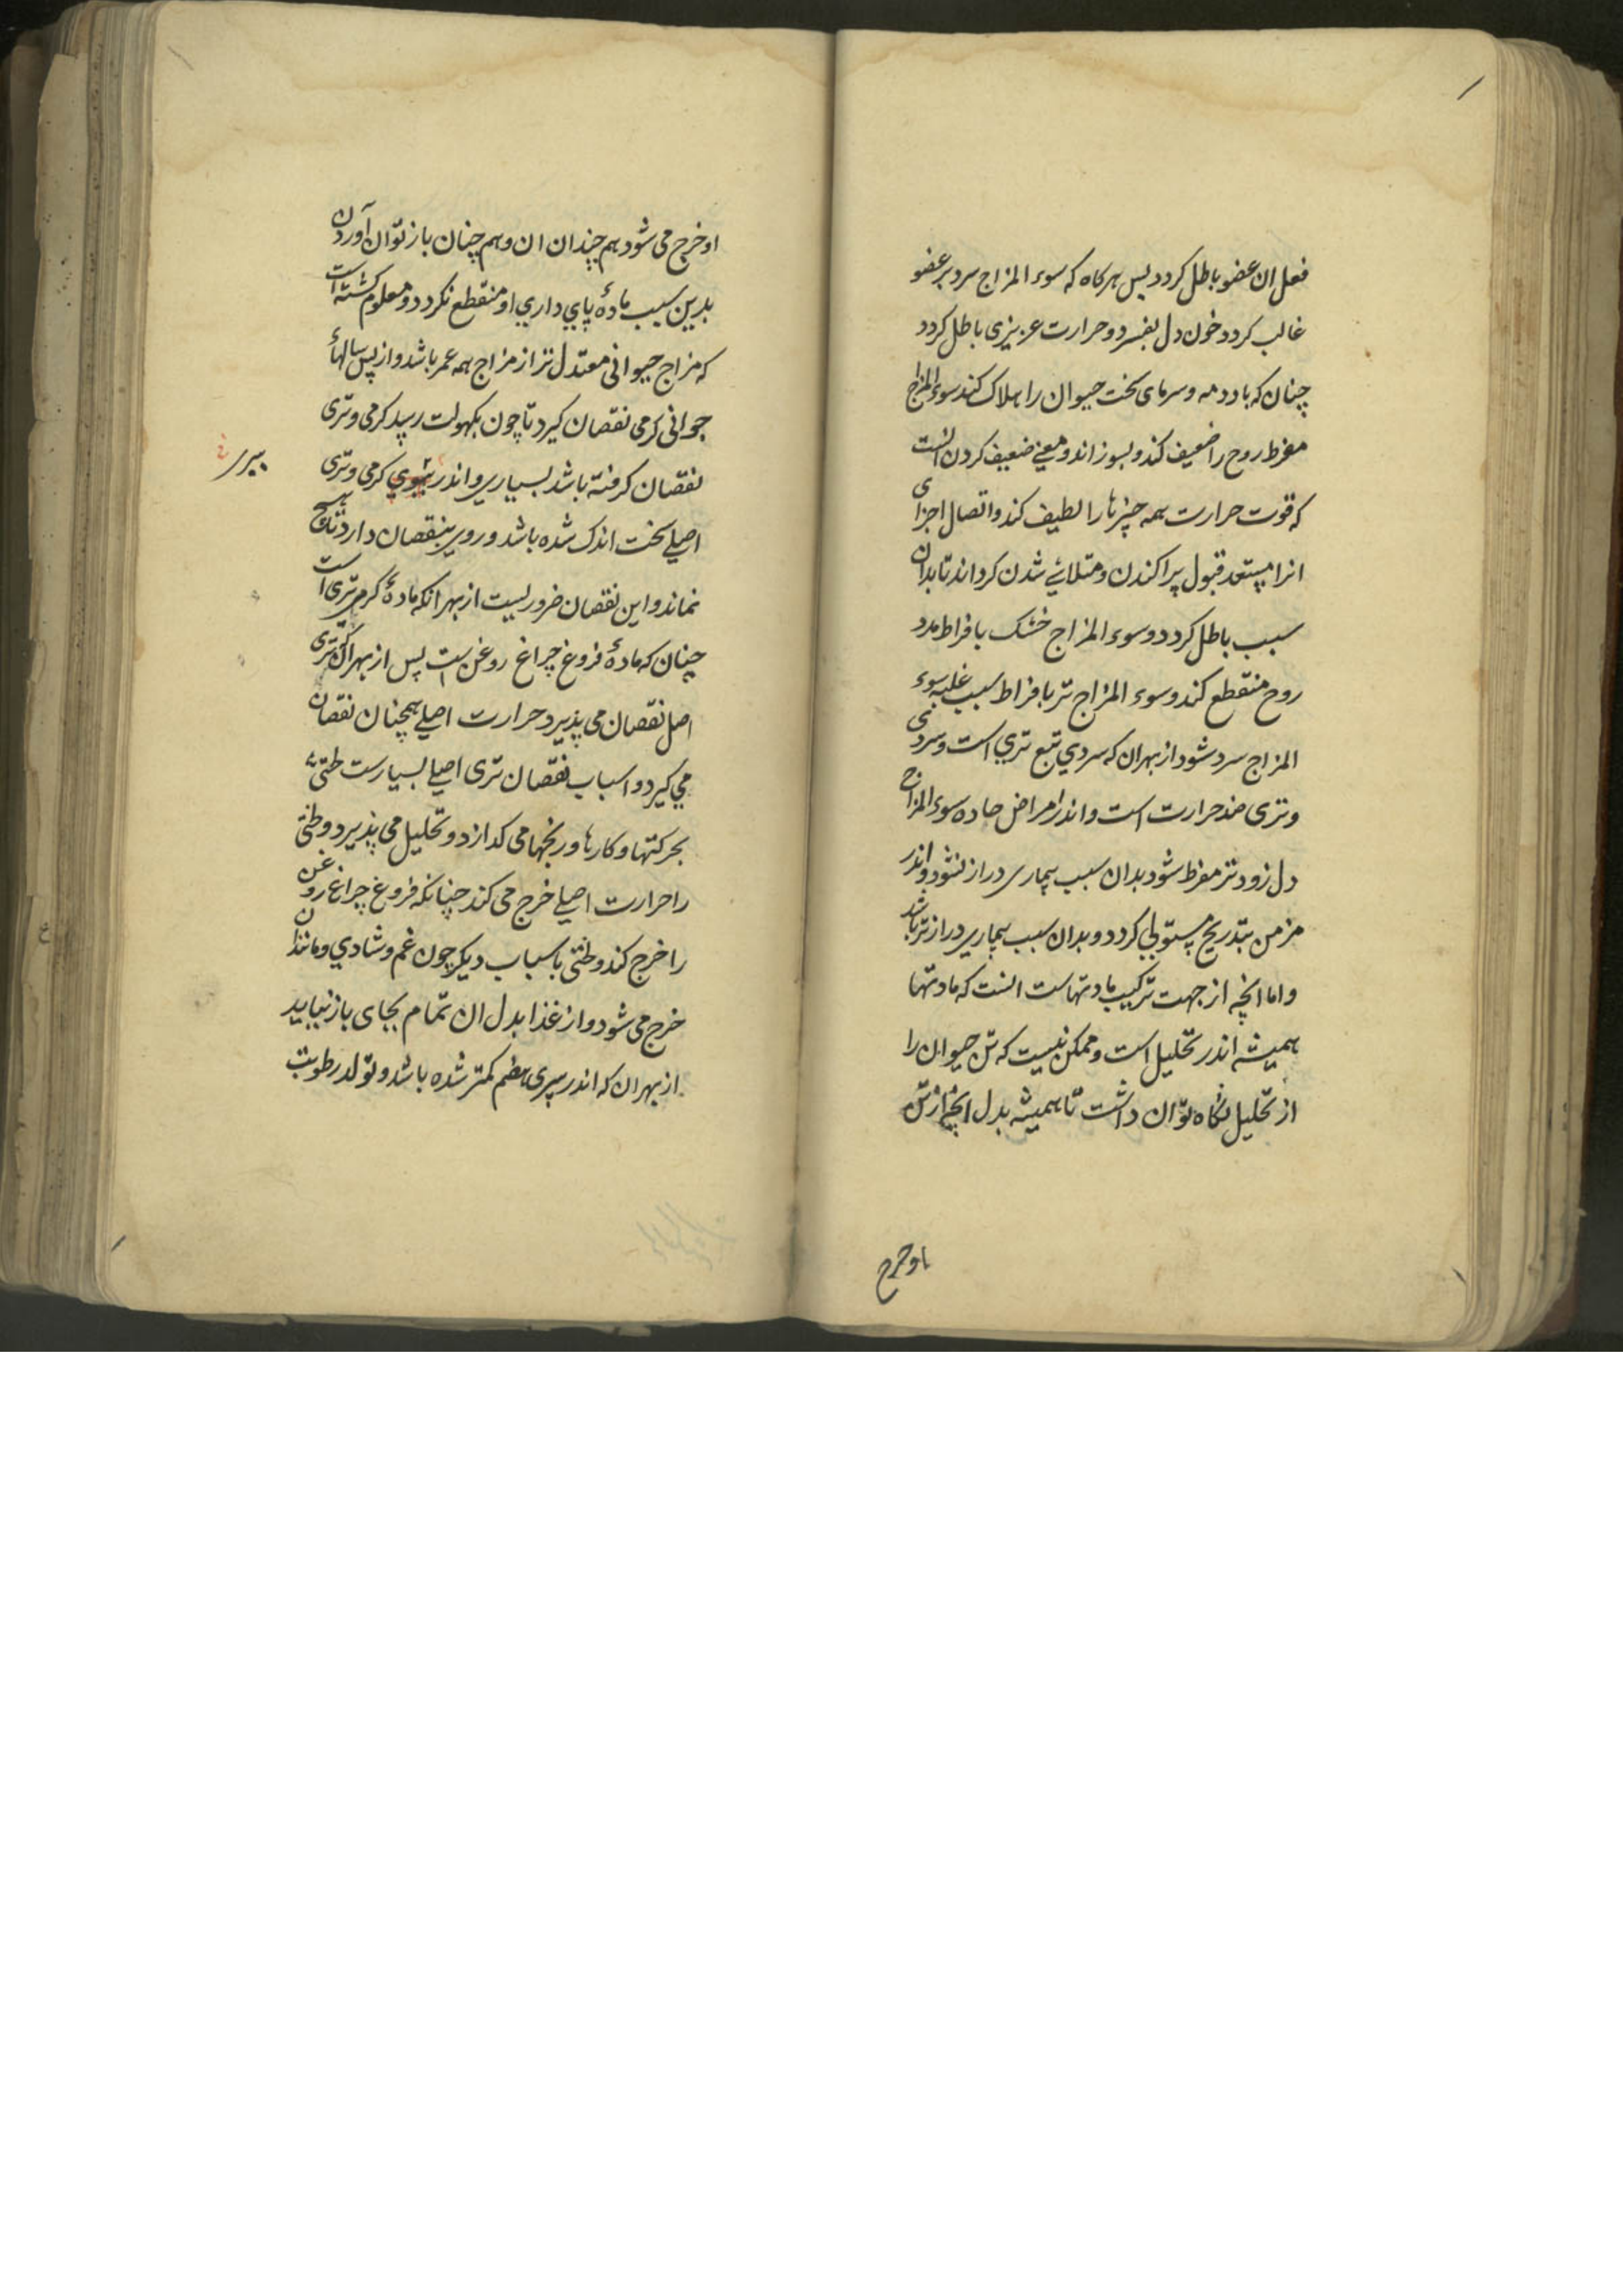 فعل ان عضو باطل کردد پس هرکاه که سوء المزاج سرد بر عضو
غالب کردد خون دل بفسرد و حرارت عزیزی باطل کردد
چنان که باد دمه و سرمای سخت حیوان را هلاک کند سوء المزاج
مفرط روح را ضعیف کند و بسوزاند و معنی ضعیف کردن انست
که قوت حرارت همه چیزها را لطیف کند و اتصال اجزای
انرا مستعد قبول پراکندن و متلاشی شدن کرداند تا بدان
سبب باطل کردد و سوء المزاج خشک بافراط مدد
روح منقطع کند و سوء المزاج تر بافراط سبب غلبه سوء
المزاج سرد شود از بهر ان که سردي تبع تري است و سردی
و تری ضد حرارت است و اندر امراض حاده سوء المزاج
دل زودتر مفرط شود بدان سبب بیماری دراز نشود و اندر
مزمن بتدریج مستولی کردد و بدان سبب بیماری درازتر باشد
و اما انچه از جهت ترکیب مادتهاست انست که مادتها
همیشه اندر تحلیل است و ممکن نیست که تن حیوان را
از تحلیل نکاه توان داشت تا همیشه بدل انچه از تن
او خرج
او خرج می شود هم چندان ان و هم چنان باز توان آوردن
بدین سبب مادهٔ پاي داري او منقطع نکردد و معلوم کشته است
که مزاج جیوانی معتدل تر از مزاج همه عمر باشد و از پس سالهاء
جوانی کرمی نقصان کیرد تا چون بکهولت رسد کرمی و تری
نقصان کرفته باشد بسیاري و اندر شوي کرمی و تری
پیری
اصلی سخت اندک شده باشد و روي بنقصان دارد تا هیچ
نماند و این نقصان ضروریست از بهر انکه مادهٔ کرمی تری است
چنان که مادهٔ فروغ چراغ روغن است پس از بهر انکه تری
اصل نقصان می پذیرد و حرارت اصلی همچنان نقصان
می کیرد و اسباب نقصان تری اصلی بسیارست طتیّ
بحرکتها و کارها و رنجها می کدازد و تحلیل می پذیرد و طتی
را حرارت اصلی خرج می کند چنانکه فروغ چراغ روغن
را خرج کند و طتی باسباب دیکر چون غم و شادي و مانند ان
خرج می شود و از غذا بدل ان تمام بجای باز نیاید
از بهر ان که اندر پیری هضم کمتر شده باشد و تولد رطوبت